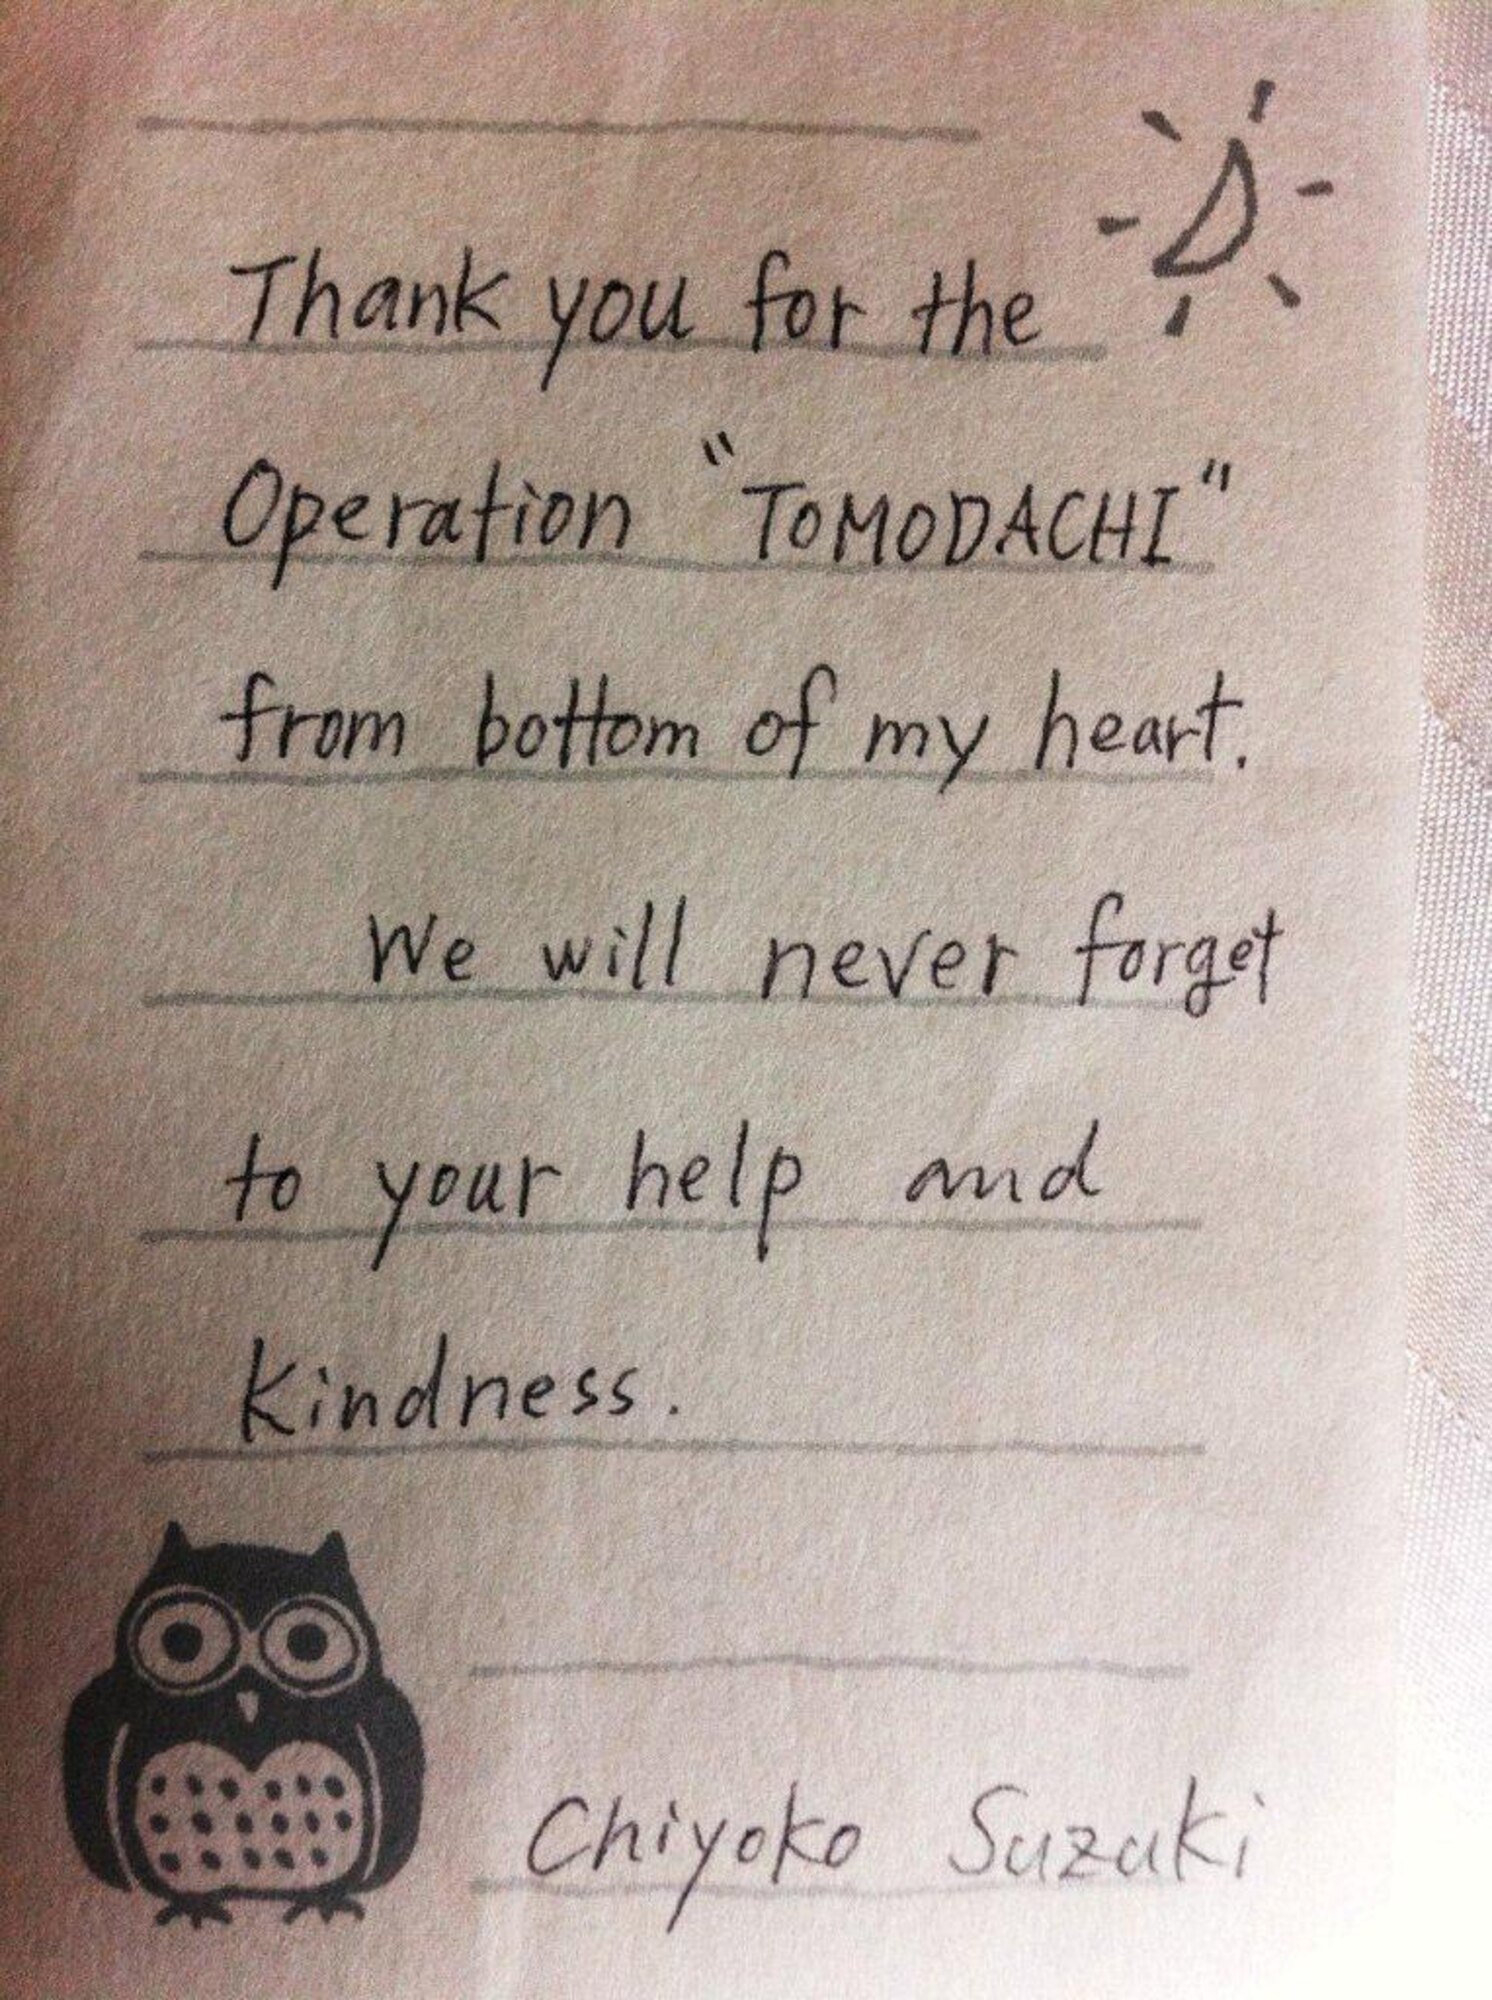 Thank you for the
Operation "TOMODACHI"
from bottom of my heart.
We will never forget
to your help and
kindness.
Chiyoko Suzuki